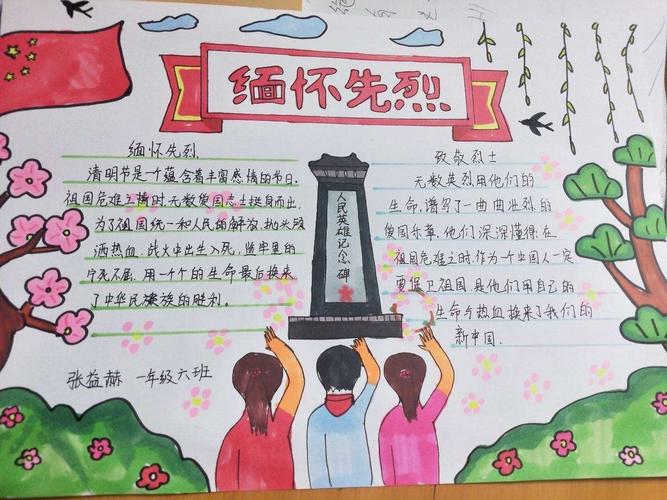 缅怀先烈
缅怀先烈
清明节是一个蕴含着丰富感情的节日.
祖国危难之时无数爱国志士挺身而出,
为了祖国统一和人民的解放,抛头颅
洒热血.战火中出生入死,监牢里的
宁死不屈.用一个个的生命最后换来
了中华民族族的胜利.
张益赫 一年级六班
人民英雄记念碑
致敬烈士
无数英烈用他们的
生命,谱写了一曲曲壮烈的
爱国乐章,他们深深懂得在
祖国危难之时.作为一个中国人一定
要保卫祖国.是他们用自己的
生命与热血换来了我们的
新中国.